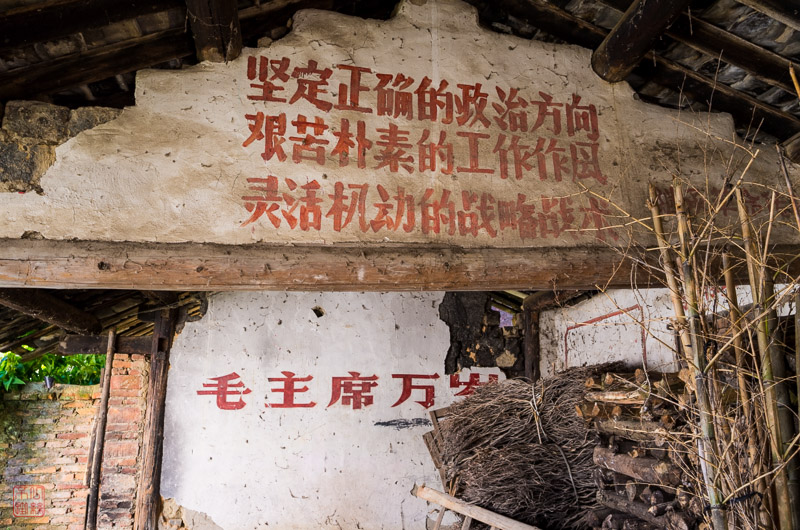 坚定正确的政治方向
艰苦朴素的工作作风
灵活机动的战略战术
毛主席万岁